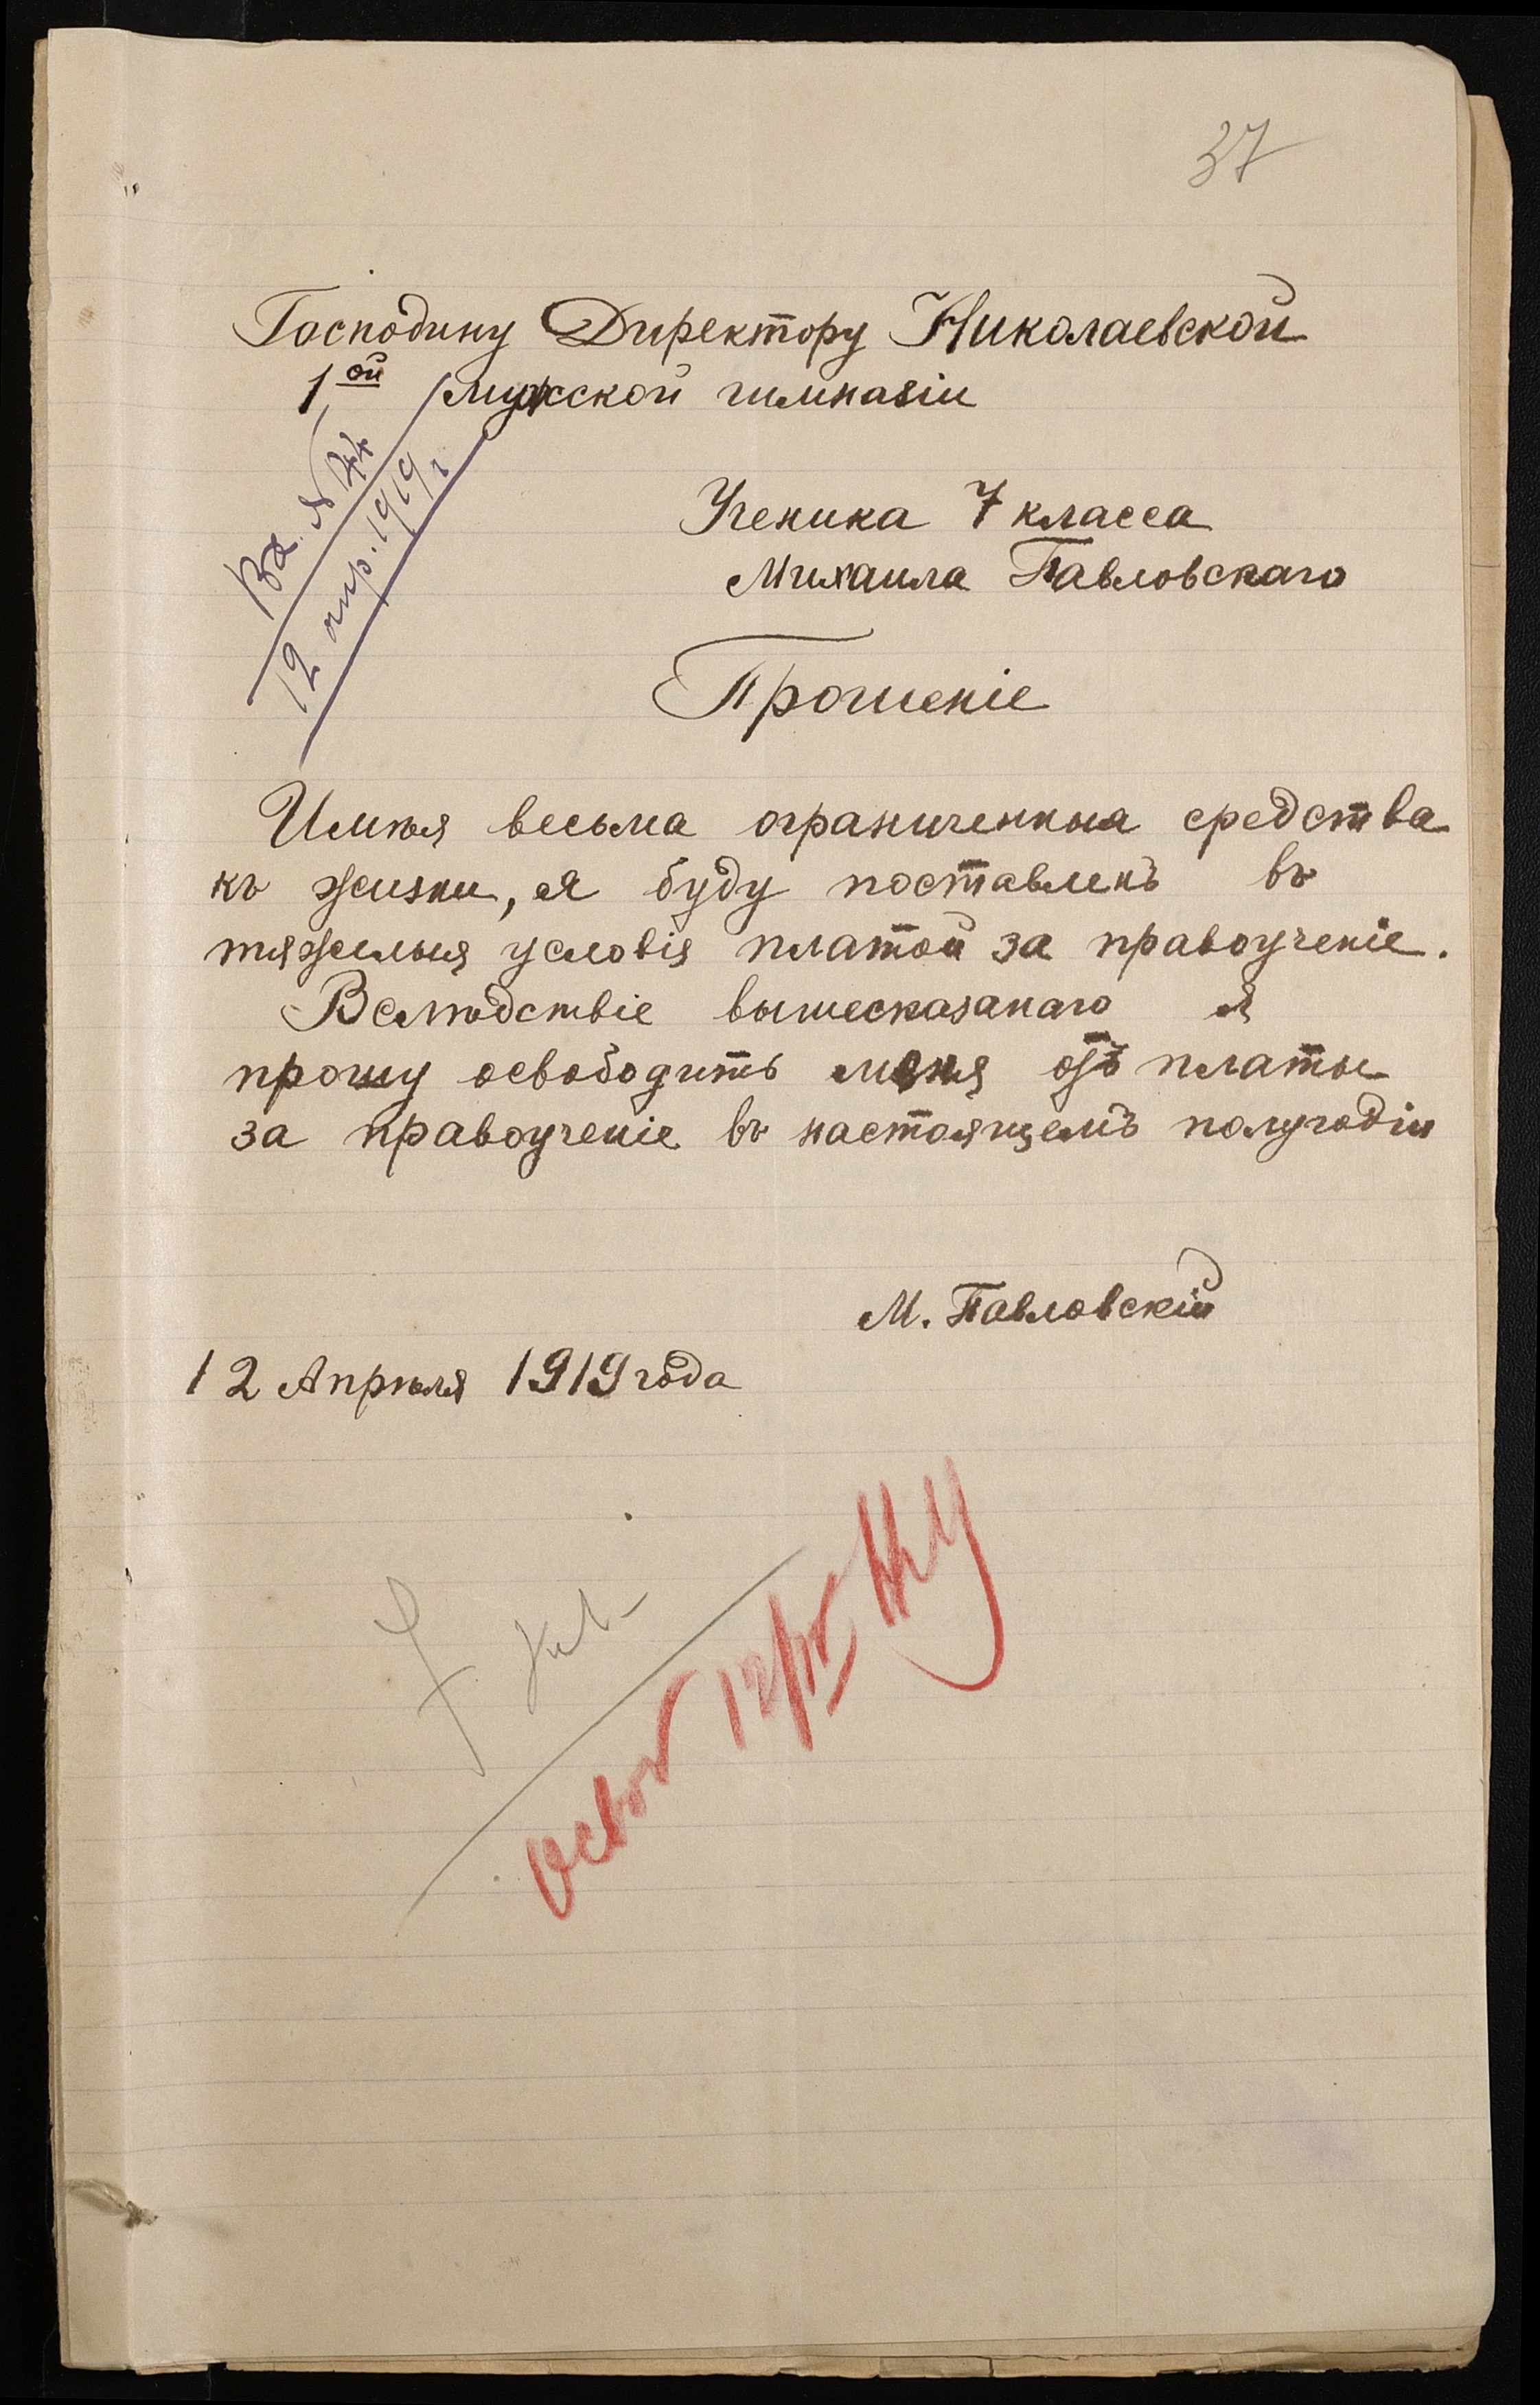 37
Господину Директору Николаевской
1ой мужской гимназіи
Вх. № 144
12 апр. 1919 г.
Ученика 7 класса
Михаила Павловскаго
Прошеніе
Имѣя весьма ограниченныя средства
къ жизни, я буду поставленъ въ
тяжелыя условія платой за правоученіе.
Вслѣдствіе вышесказанаго я
прошу освободить меня отъ платы
за правоученіе въ настоящемъ полугодіи
М. Павловскій
12 Апрѣля 1919 года
Освоб 12/IV